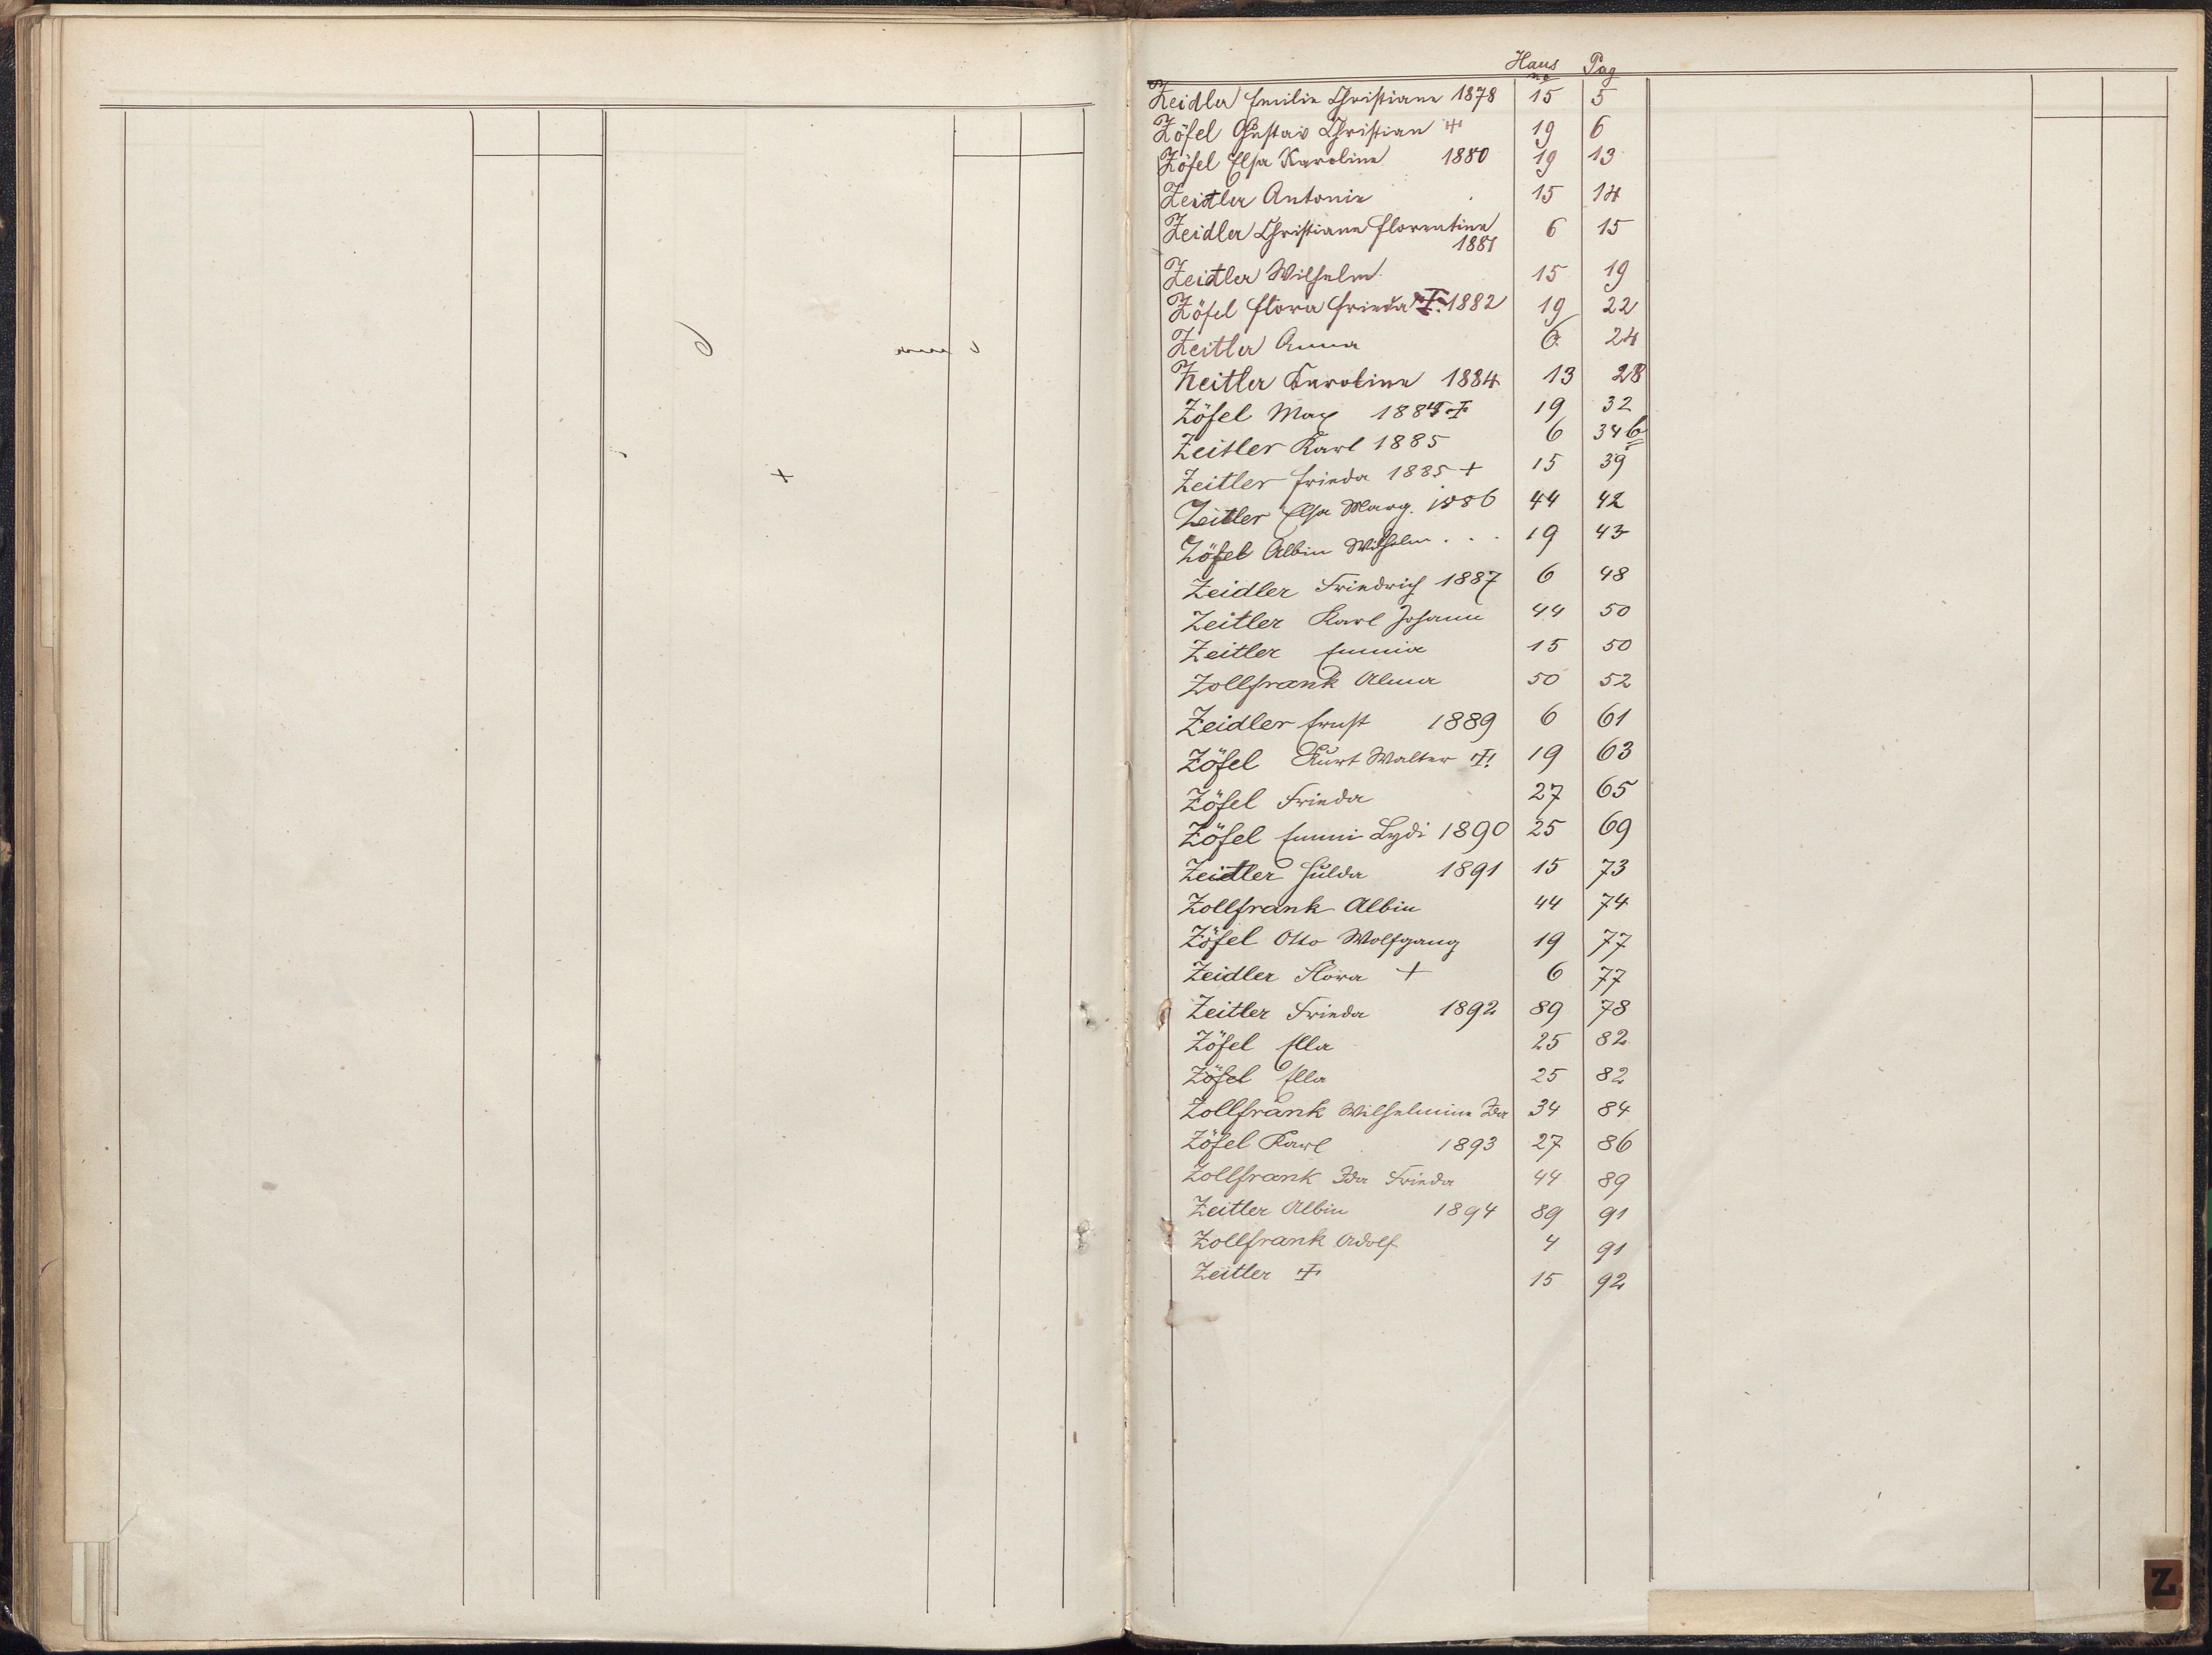 Haus Pag
no
Zeidler Emilie Christiane 1878 15 5
Zöfel Gustav Christian ‡ 19 6
Zöfel Elsa Karoline 1880 19 13
Zeidler Antonie 15 14
Zeidler Christiane Florentine 6 15
1881
Zeidler Wilhelm 15 19
Zöfel Flora Frieda ‡ 1882 19 22
Zeitler Anna 6 24
Zeitler Karoline 1884 13 28
Zöfel Max 1885 ‡ 19 32
Zeitler Karl 1885 6 34b
Zeitler Frieda 1885 + 15 39
Zeitler Elsa Marg. 1886 44 42
Zöfel Albin Wilhelm . . . 19 43
Zeidler Friedrich 1887 6 48
Zeitler Karl Johann 44 50
Zeitler Emmia 15 50
Zollfrank Alma 50 52
Zeidler Ernst 1889 6 61
Zöfel Kurt Walter ‡ 19 63
Zöfel Frieda 27 65
Zöfel Emmi Lydi 1890 25 69
Zeidler Hulda 1891 15 73
Zollfrank Albin 44 74
Zöfel Otto Wolfgang 19 77
Zeidler Flora + 6 77
Zeitler Frieda 1892 89 78
Zöfel Ella 25 82
Zöfel Ella 25 82
Zollfrank Wilhelmine Ida 34 84
Zöfel Karl 1893 27 86
Zollfrank Ida Frieda 44 89
Zeitler Albin 1894 89 91
Zollfrank Adolf 4 91
Zeitler ‡ 15 92
Z